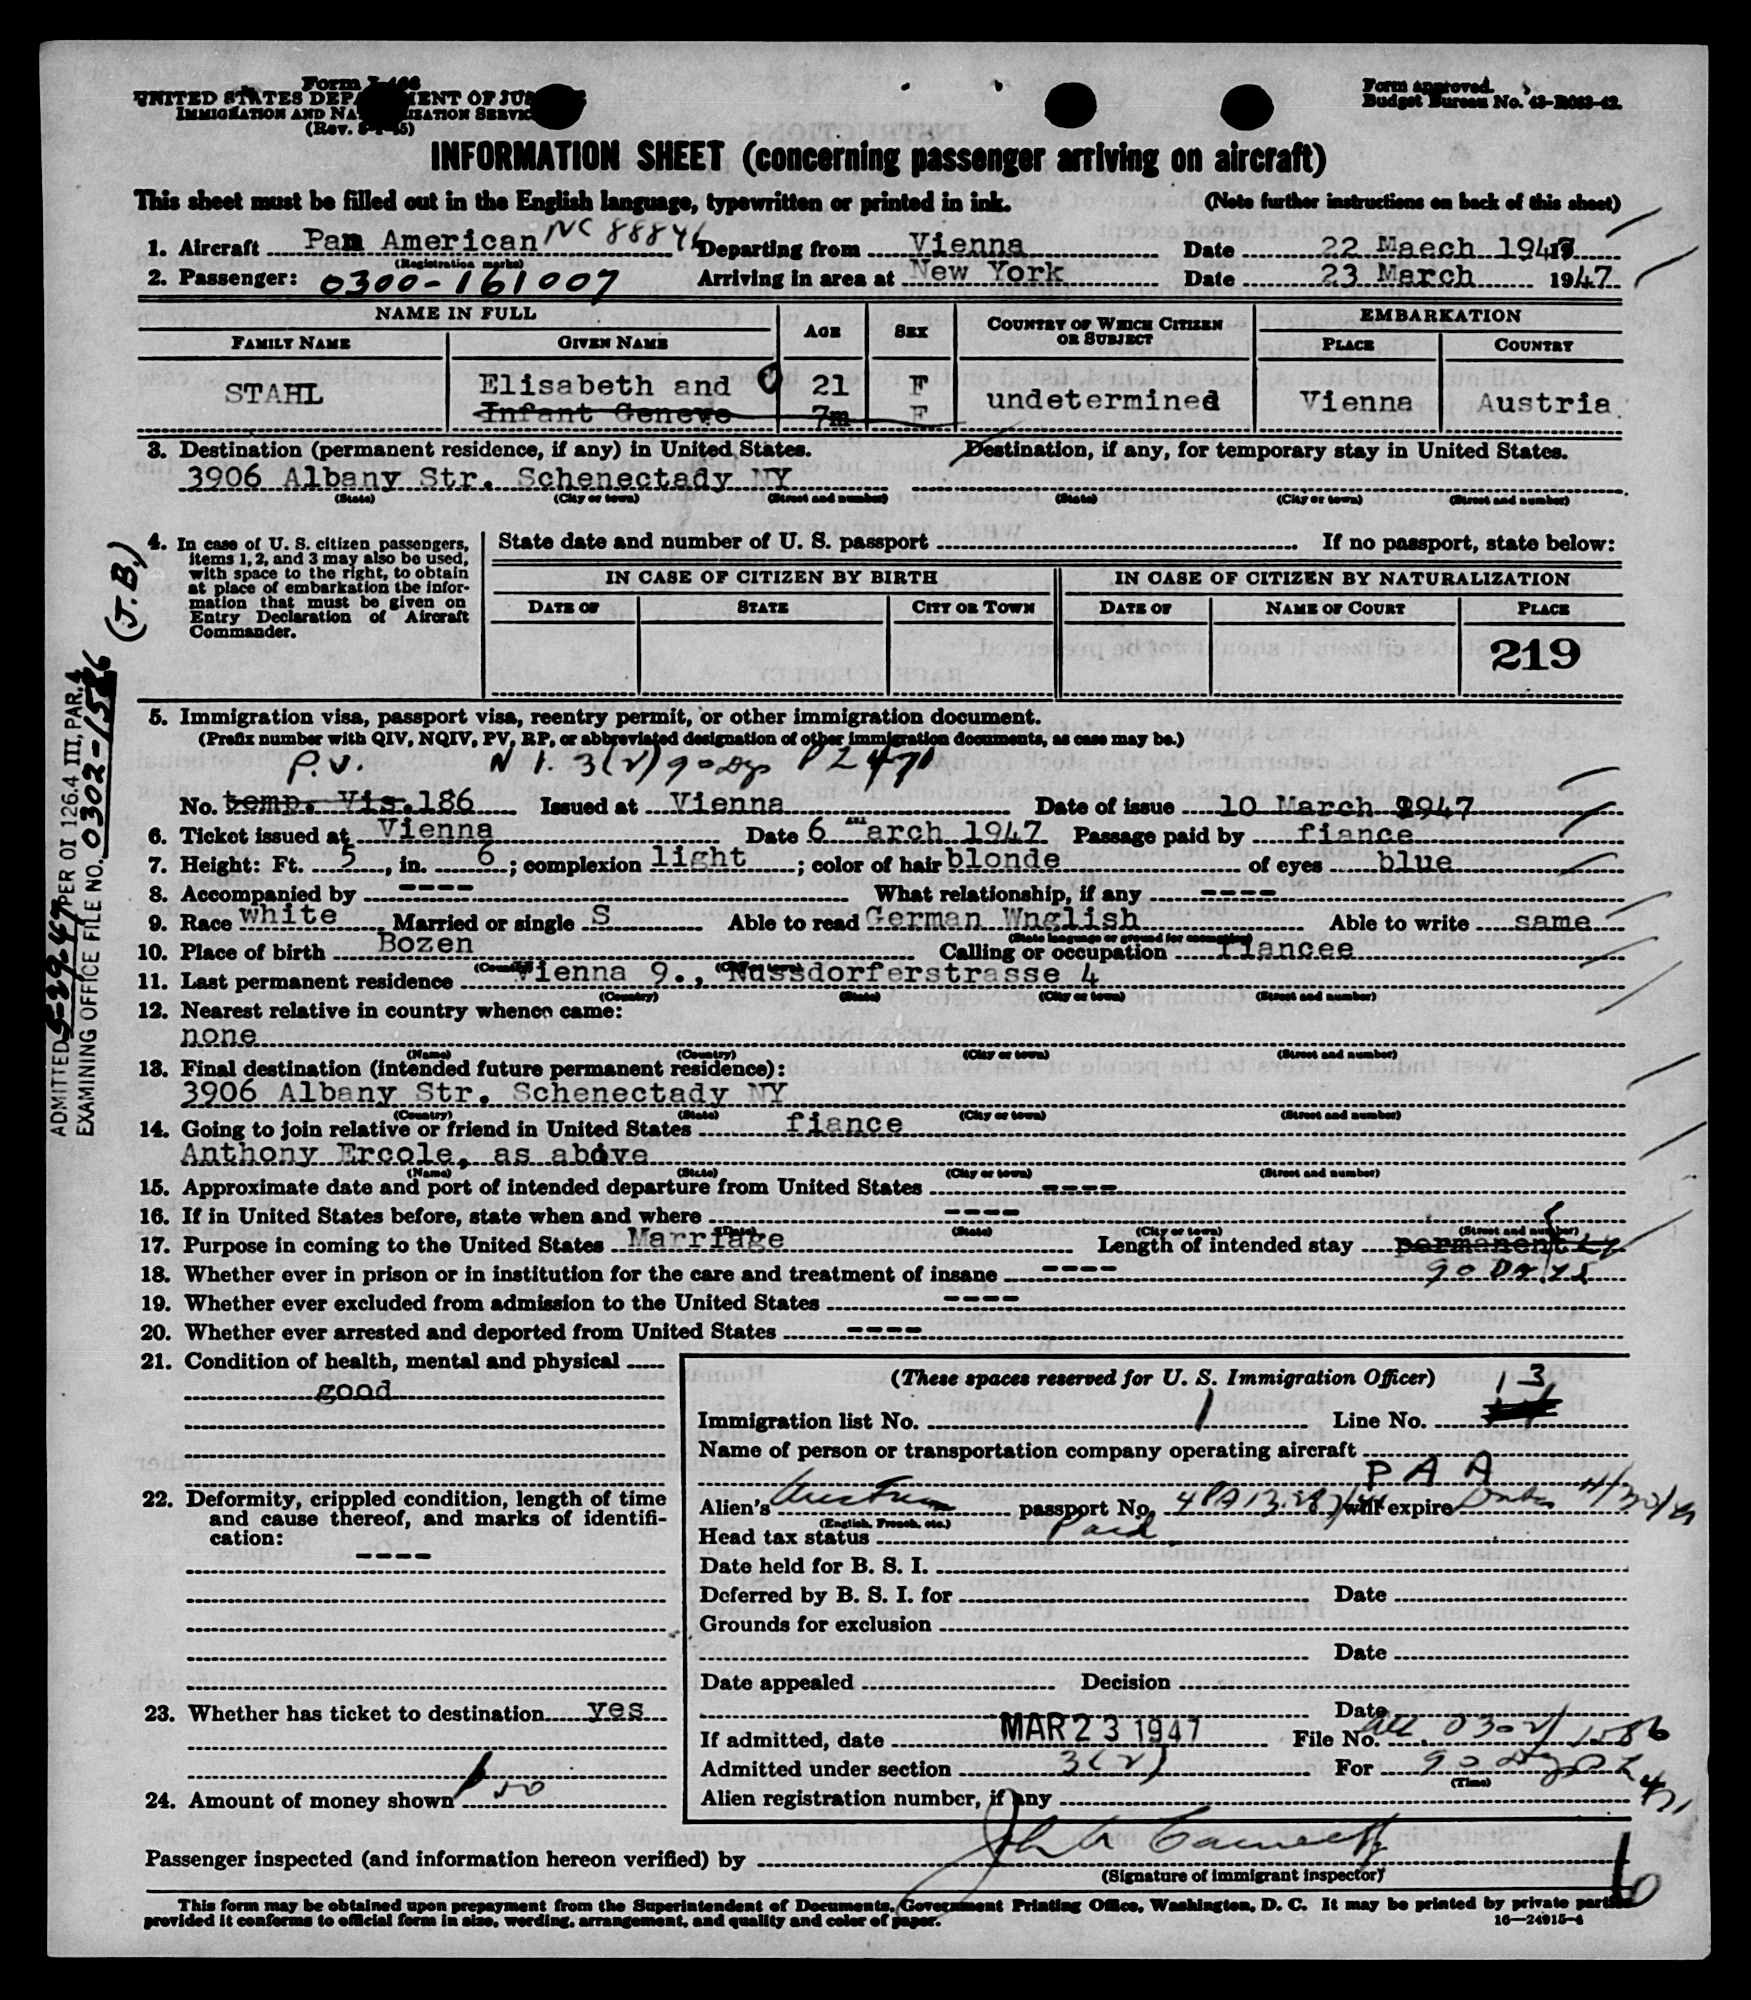 Form I-466
UNITED STATES DEPARTMENT OF JUS
IMMIGRATION AND NATURALIZATION SERVICE
(Rev. 5-1-45)
Form approved.
Budget Bureau No. 43-R083-42.
INFORMATION SHEET (concerning passenger arriving on aircraft)
This sheet must be filled out in the English language, typewritten or printed in ink. (Note further instructions on back of this sheet)
1. Aircraft Pan American NC 88846 Departing from Vienna Date 22 Maech 1947
(Registration marks)
2. Passenger: 0300-161007 Arriving in area at New York Date 23 March 1947
NAME IN FULL AGE SEX COUNTRY OF WHICH CITIZEN OR SUBJECT EMBARKATION
FAMILY NAME GIVEN NAME PLACE COUNTRY
STAHL Elisabeth and 21 F undetermined Vienna Austria
Infant Geneve 7m F
3. Destination (permanent residence, if any) in United States. Destination, if any, for temporary stay in United States.
3906 Albany Str. Schenectady NY
(State) (City or town) (Street and number) (State) (City or town) (Street and number)
4. In case of U. S. citizen passengers, items 1, 2, and 3 may also be used, with space to the right, to obtain at place of embarkation the information that must be given on Entry Declaration of Aircraft Commander.
State date and number of U. S. passport If no passport, state below:
IN CASE OF CITIZEN BY BIRTH IN CASE OF CITIZEN BY NATURALIZATION
DATE OF STATE CITY OR TOWN DATE OF NAME OF COURT PLACE
219
(J.B.)
ADMITTED 5-29-47 PER OI 126.4 III, PAR. 4
EXAMINING OFFICE FILE NO. 0302-1586
5. Immigration visa, passport visa, reentry permit, or other immigration document.
(Prefix number with QIV, NQIV, PV, RP, or abbreviated designation of other immigration documents, as case may be.)
P.V. N 1. 3(2) 90 Dys PL 471
No. temp. Vis. 186 Issued at Vienna Date of issue 10 March 1947
6. Ticket issued at Vienna Date 6 March 1947 Passage paid by fiance
7. Height: Ft. 5, in. 6; complexion light; color of hair blonde of eyes blue
8. Accompanied by ---- What relationship, if any ----
9. Race white Married or single S Able to read German Wnglish Able to write same
(State language or ground for exemption)
10. Place of birth Bozen Calling or occupation fiancee
(Country) (City or town)
11. Last permanent residence Vienna 9., Nussdorferstrasse 4
(Country) (State) (City or town) (Street and number)
12. Nearest relative in country whence came:
none
(Name) (Country) (City or town) (Street and number)
13. Final destination (intended future permanent residence):
3906 Albany Str. Schenectady NY
(Country) (State) (City or town) (Street and number)
14. Going to join relative or friend in United States fiance
Anthony Ercole, as above
(Name) (State) (City or town) (Street and number)
15. Approximate date and port of intended departure from United States ----
16. If in United States before, state when and where ----
(Date) (State) (City or town) (Street and number)
17. Purpose in coming to the United States Marriage Length of intended stay permanently
18. Whether ever in prison or in institution for the care and treatment of insane ---- 90 Days
19. Whether ever excluded from admission to the United States ----
20. Whether ever arrested and deported from United States ----
21. Condition of health, mental and physical
good
22. Deformity, crippled condition, length of time and cause thereof, and marks of identification:
----
23. Whether has ticket to destination yes
24. Amount of money shown 50
(These spaces reserved for U. S. Immigration Officer)
Immigration list No. 1 Line No. 13
Name of person or transportation company operating aircraft
PAA
Alien's Austrian passport No. will expire
(English, French, etc.)
Head tax status Paid
Date held for B. S. I.
Deferred by B. S. I. for Date
Grounds for exclusion
Date
Date appealed Decision
Date
If admitted, date MAR 23 1947 File No. 0302/1586
Admitted under section 3(2) For 90 Dys PL 471
(Time)
Alien registration number, if any
Passenger inspected (and information hereon verified) by
(Signature of immigrant inspector)
This form may be obtained upon prepayment from the Superintendent of Documents, Government Printing Office, Washington, D. C. It may be printed by private parties
provided it conforms to official form in size, wording, arrangement, and quality and color of paper.
16—24915-4